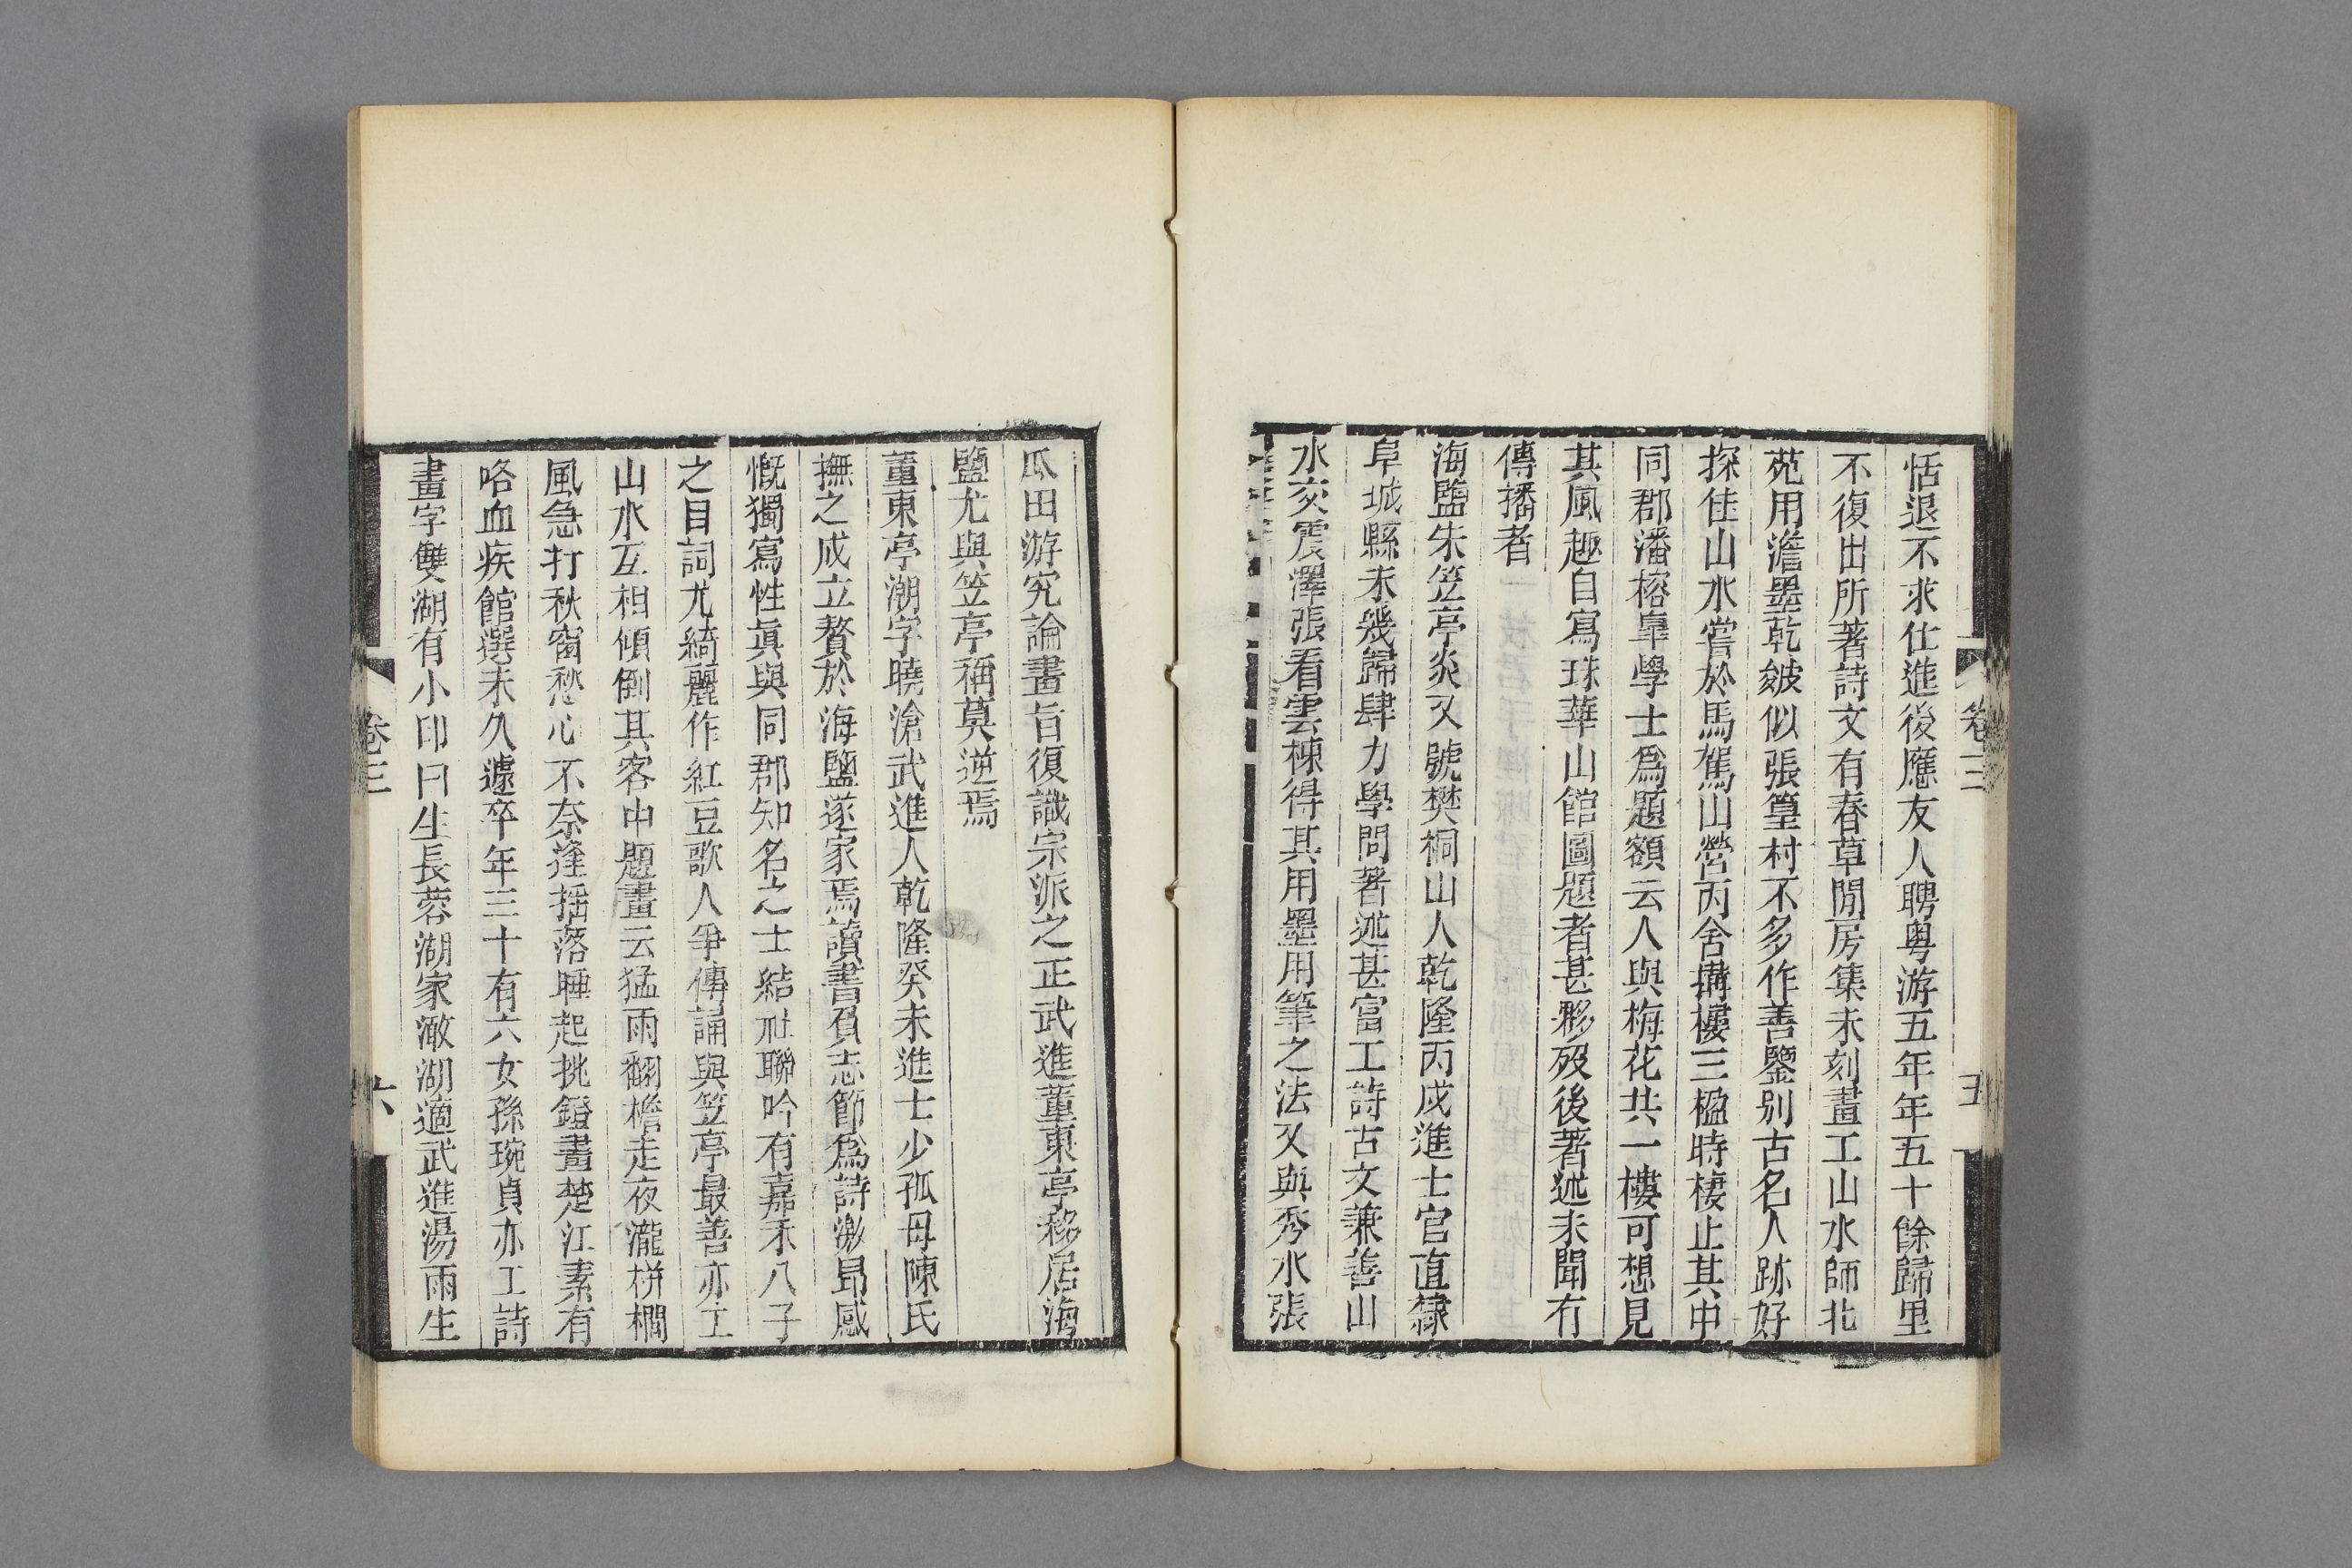 恬退不求仕進後應友人聘粵游五年年五十餘歸里
不復出所著詩文有春草閒房集未刻畫工山水師北
苑用澹墨乾皴似張篁村不多作善鑒别古名人跡好
探佳山水嘗於馬駕山營丙舍搆樓三楹時棲止其中
同郡潘榕臯學士爲題額云人與梅花共一樓可想見
其風趣自寫珠華山館圖題者甚夥歿後著述未聞有
傳播者
海鹽朱笠亭炎又號樊桐山人乾隆丙戌進士官直隸
阜城縣未幾歸肆力學問著述甚富工詩古文兼善山
水交震澤張看雲棟得其用墨用筆之法又與秀水張
卷三
五
瓜田游究論畫旨復識宗派之正武進董東亭移居海
鹽尤與笠亭稱莫逆焉
董東亭潮字曉滄武進人乾隆癸未進士少孤母陳氏
撫之成立贅於海鹽遂家焉讀書負志節爲詩激昂感
慨獨寫性眞與同郡知名之士結社聯吟有嘉禾八子
之目詞尤綺麗作紅豆歌人爭傳誦與笠亭最善亦工
山水互相傾倒其客中題畫云猛雨翻檐走夜瀧栟櫚
風急打秋窗愁心不奈逢搖落睡起挑鐙畫楚江素有
咯血疾館選未久遽卒年三十有六女孫琬貞亦工詩
畫字雙湖有小印曰生長蓉湖家澉湖適武進湯雨生
卷三
六